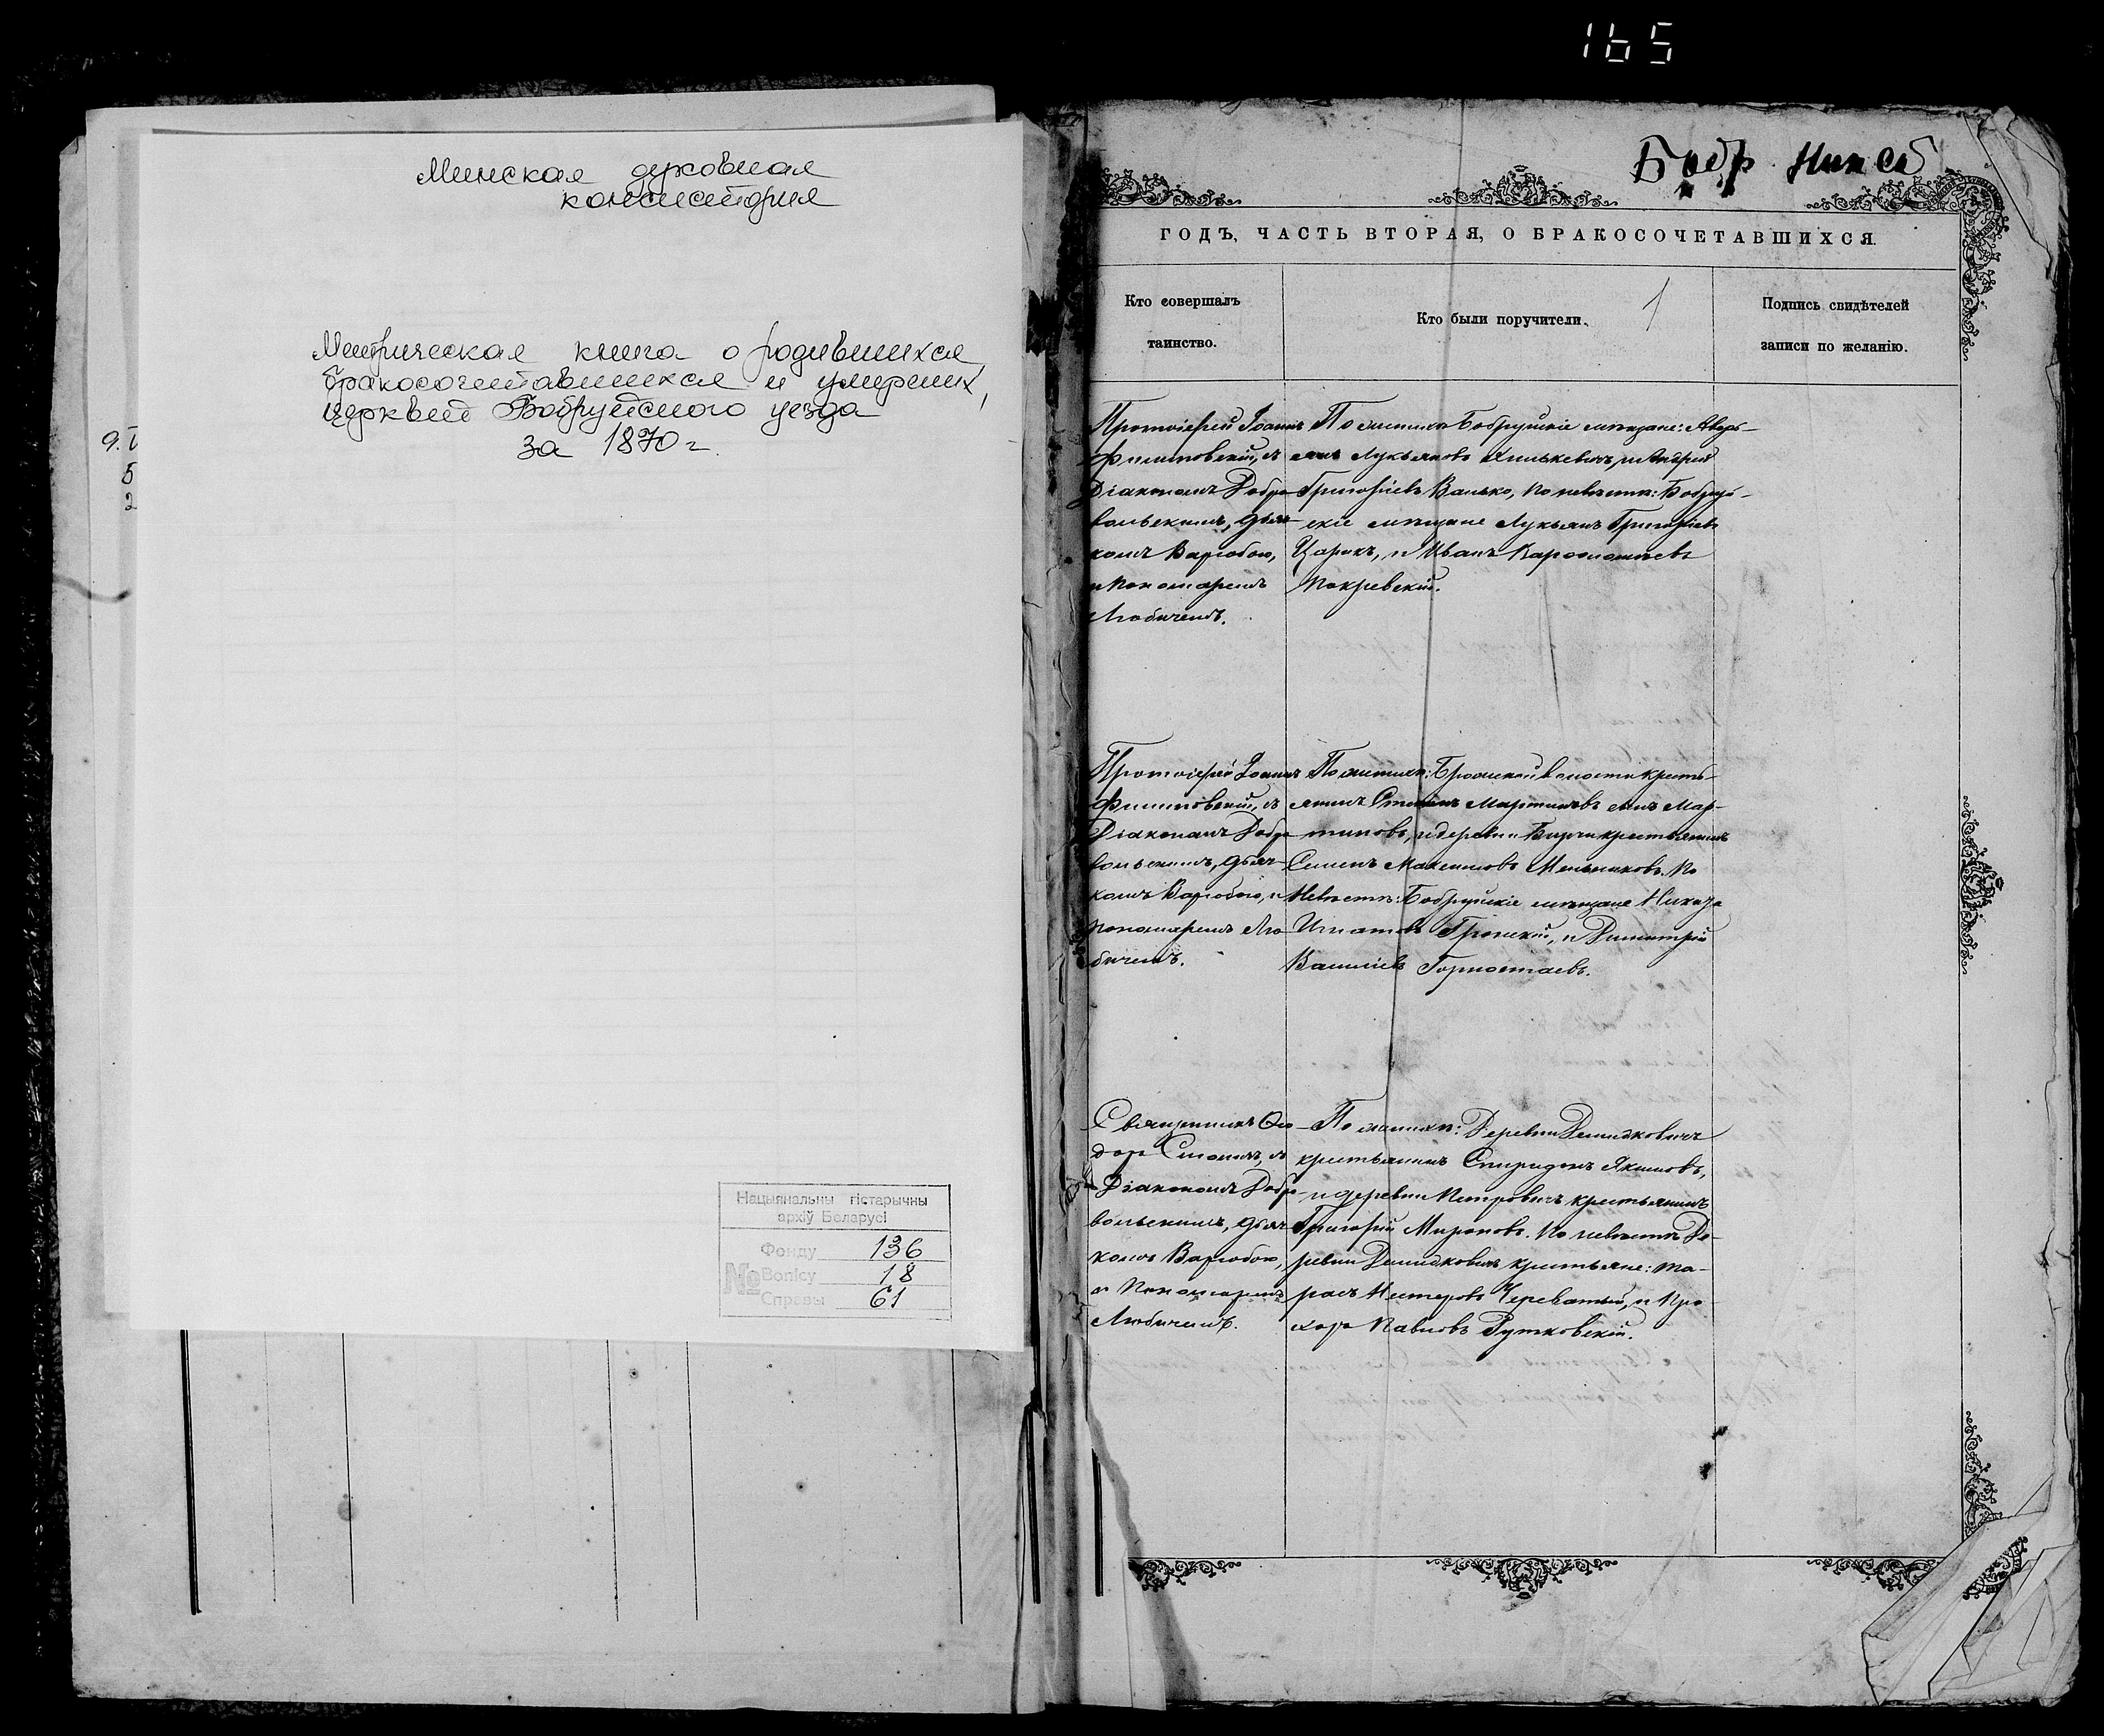 165
Минская духовная
консистория
Метрическая книга о родившихся,
бракосочетавшихся и умерших,
церквей Бобруйского уезда
за 1870 г.
Нацыянальны гістарычны
архіў Беларусі
Фонду 136
№ Вопісу 18
Справы 61
Бобр
ГОДЪ, ЧАСТЬ ВТОРАЯ, О БРАКОСОЧЕТАВШИХСЯ.
1
Кто совершалъ
таинство.
Кто были поручители.
Подпись свидѣтелей
записи по желанію.
Протоіерей Іоаннъ
съ
Діакономъ Добро-
вольскимъ, дьяч-
комъ Варзобою,
и Пономаремъ
Любичемъ.
По женихѣ Бобруйскіе мѣщане:
Лукьяновъ и Андрей
Григорьевъ Ванько, По невѣстѣ: Бобруй-
скіе мѣщане Лукьянъ Григорьевъ
Царикъ, и Иванъ
Покревскій.
Протоіерей Іоаннъ
съ
Діакономъ Добро-
вольскимъ, дьяч-
комъ Варзобою, и
пономаремъ Лю-
бичемъ.
По женихѣ: волости кресть-
янинъ Мар-
тиновъ, и деревни крестьянинъ
Семенъ Максимовъ Мельниковъ. По
Невѣстѣ: Бобруйскіе мѣщане
Игнатовъ и Димитрій
Василіевъ Горностаевъ.
Священникъ Ѳео-
доръ съ
Діакономъ Добро-
вольскимъ, дьяч-
комъ Варзобою,
и Пономаремъ
Любичемъ.
По женихѣ: Деревни Демидковичъ
крестьянинъ Спиридонъ Якимовъ,
и деревни Петровичъ крестьянинъ
Григорій Мироновъ. По невѣстѣ Де-
ревни Демидковичъ крестьяне: Та-
расъ Нестеровъ Череватый, и Про-
хоръ Павловъ Рутковскій.